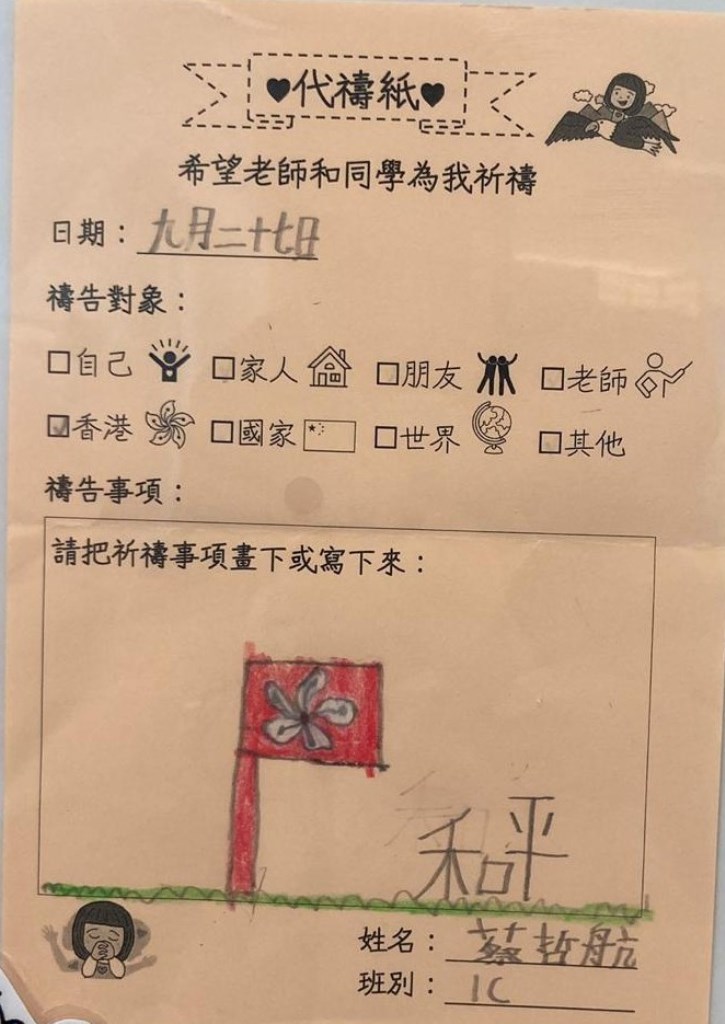 ♥代禱紙♥
希望老師和同學為我祈禱
日期：九月二十七日
禱告對象：
□自己 □家人 □朋友 □老師
☑香港 □國家 □世界 □其他
禱告事項：
請把祈禱事項畫下或寫下來：
和平
姓名：蔡哲航
班別：1C